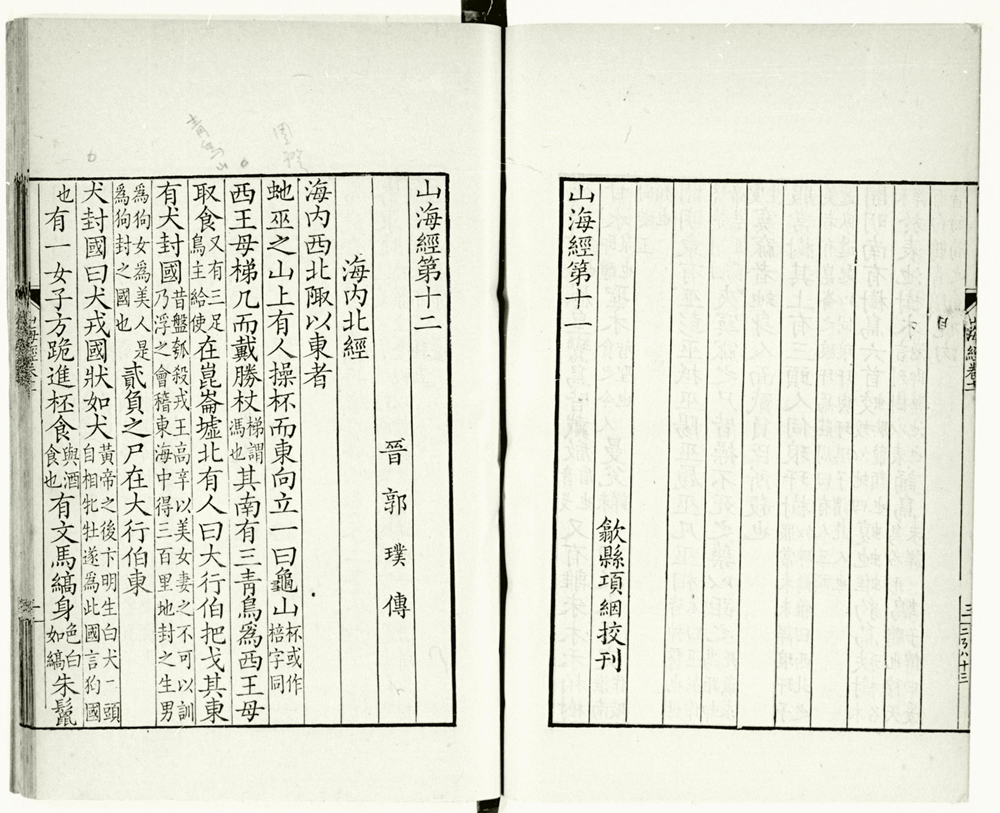 山海經第十一
歙縣項絪挍刊
山海經第十二
海内北經
晉郭璞傳
海内西北陬以東者
虵巫之山上有人操杯而東向立一曰龜山杯或作棓字同
西王母梯几而戴勝杖梯謂馮也其南有三青鳥爲西王母
取食又有三足鳥主給使在崑崙墟北有人曰大行伯把戈其東
有犬封國昔盤瓠殺戎王高辛以美女妻之不可以訓乃浮之會稽東海中得三百里地封之生男
爲狗女爲美人是爲狗封之國也貳負之尸在大行伯東
犬封國曰犬戎國狀如犬黃帝之後卞明生白犬一頭自相牝牡遂爲此國言狗國
也有一女子方跪進柸食與酒食也有文馬縞身色白如縞朱鬣